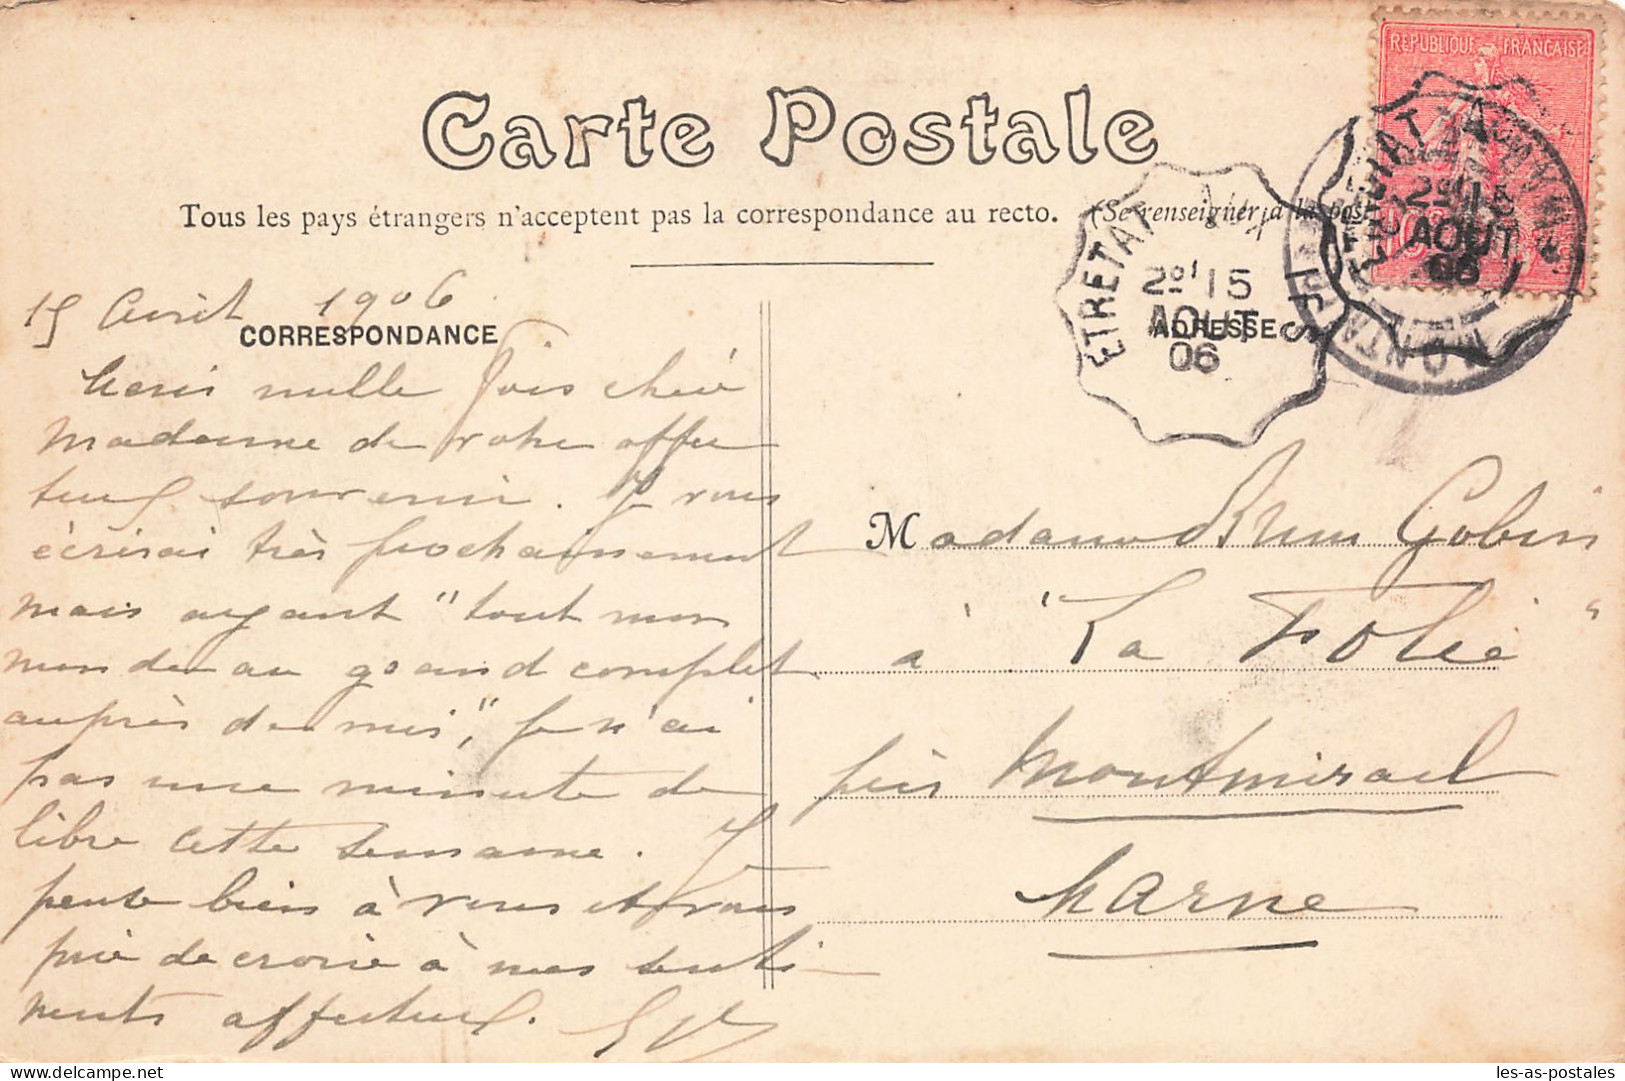 REPUBLIQUE FRANÇAISE
Carte Postale
Tous les pays étrangers n'acceptent pas la correspondance au recto. (Se renseigner à la poste
ETRETAT AUX IFS
2º 15
AOUT
06
ETRETAT
2º 15
AOUT
06
MONTMIRAIL
15 Août 1906
CORRESPONDANCE
ADRESSE
Merci mille fois chère
Madame de votre affec
tueux souvenir. Je vous
écrirai très prochainement
mais ayant "tout mon
monde au grand complet
auprès de moi", je n'ai
pas une minute de
libre cette semaine. Je
pense bien à vous et vous
prie de croire à mes senti
ments affectueux.
Madame Gobin
à "La Folie"
près Montmirail
Marne
delcampe.net
les-as-postales